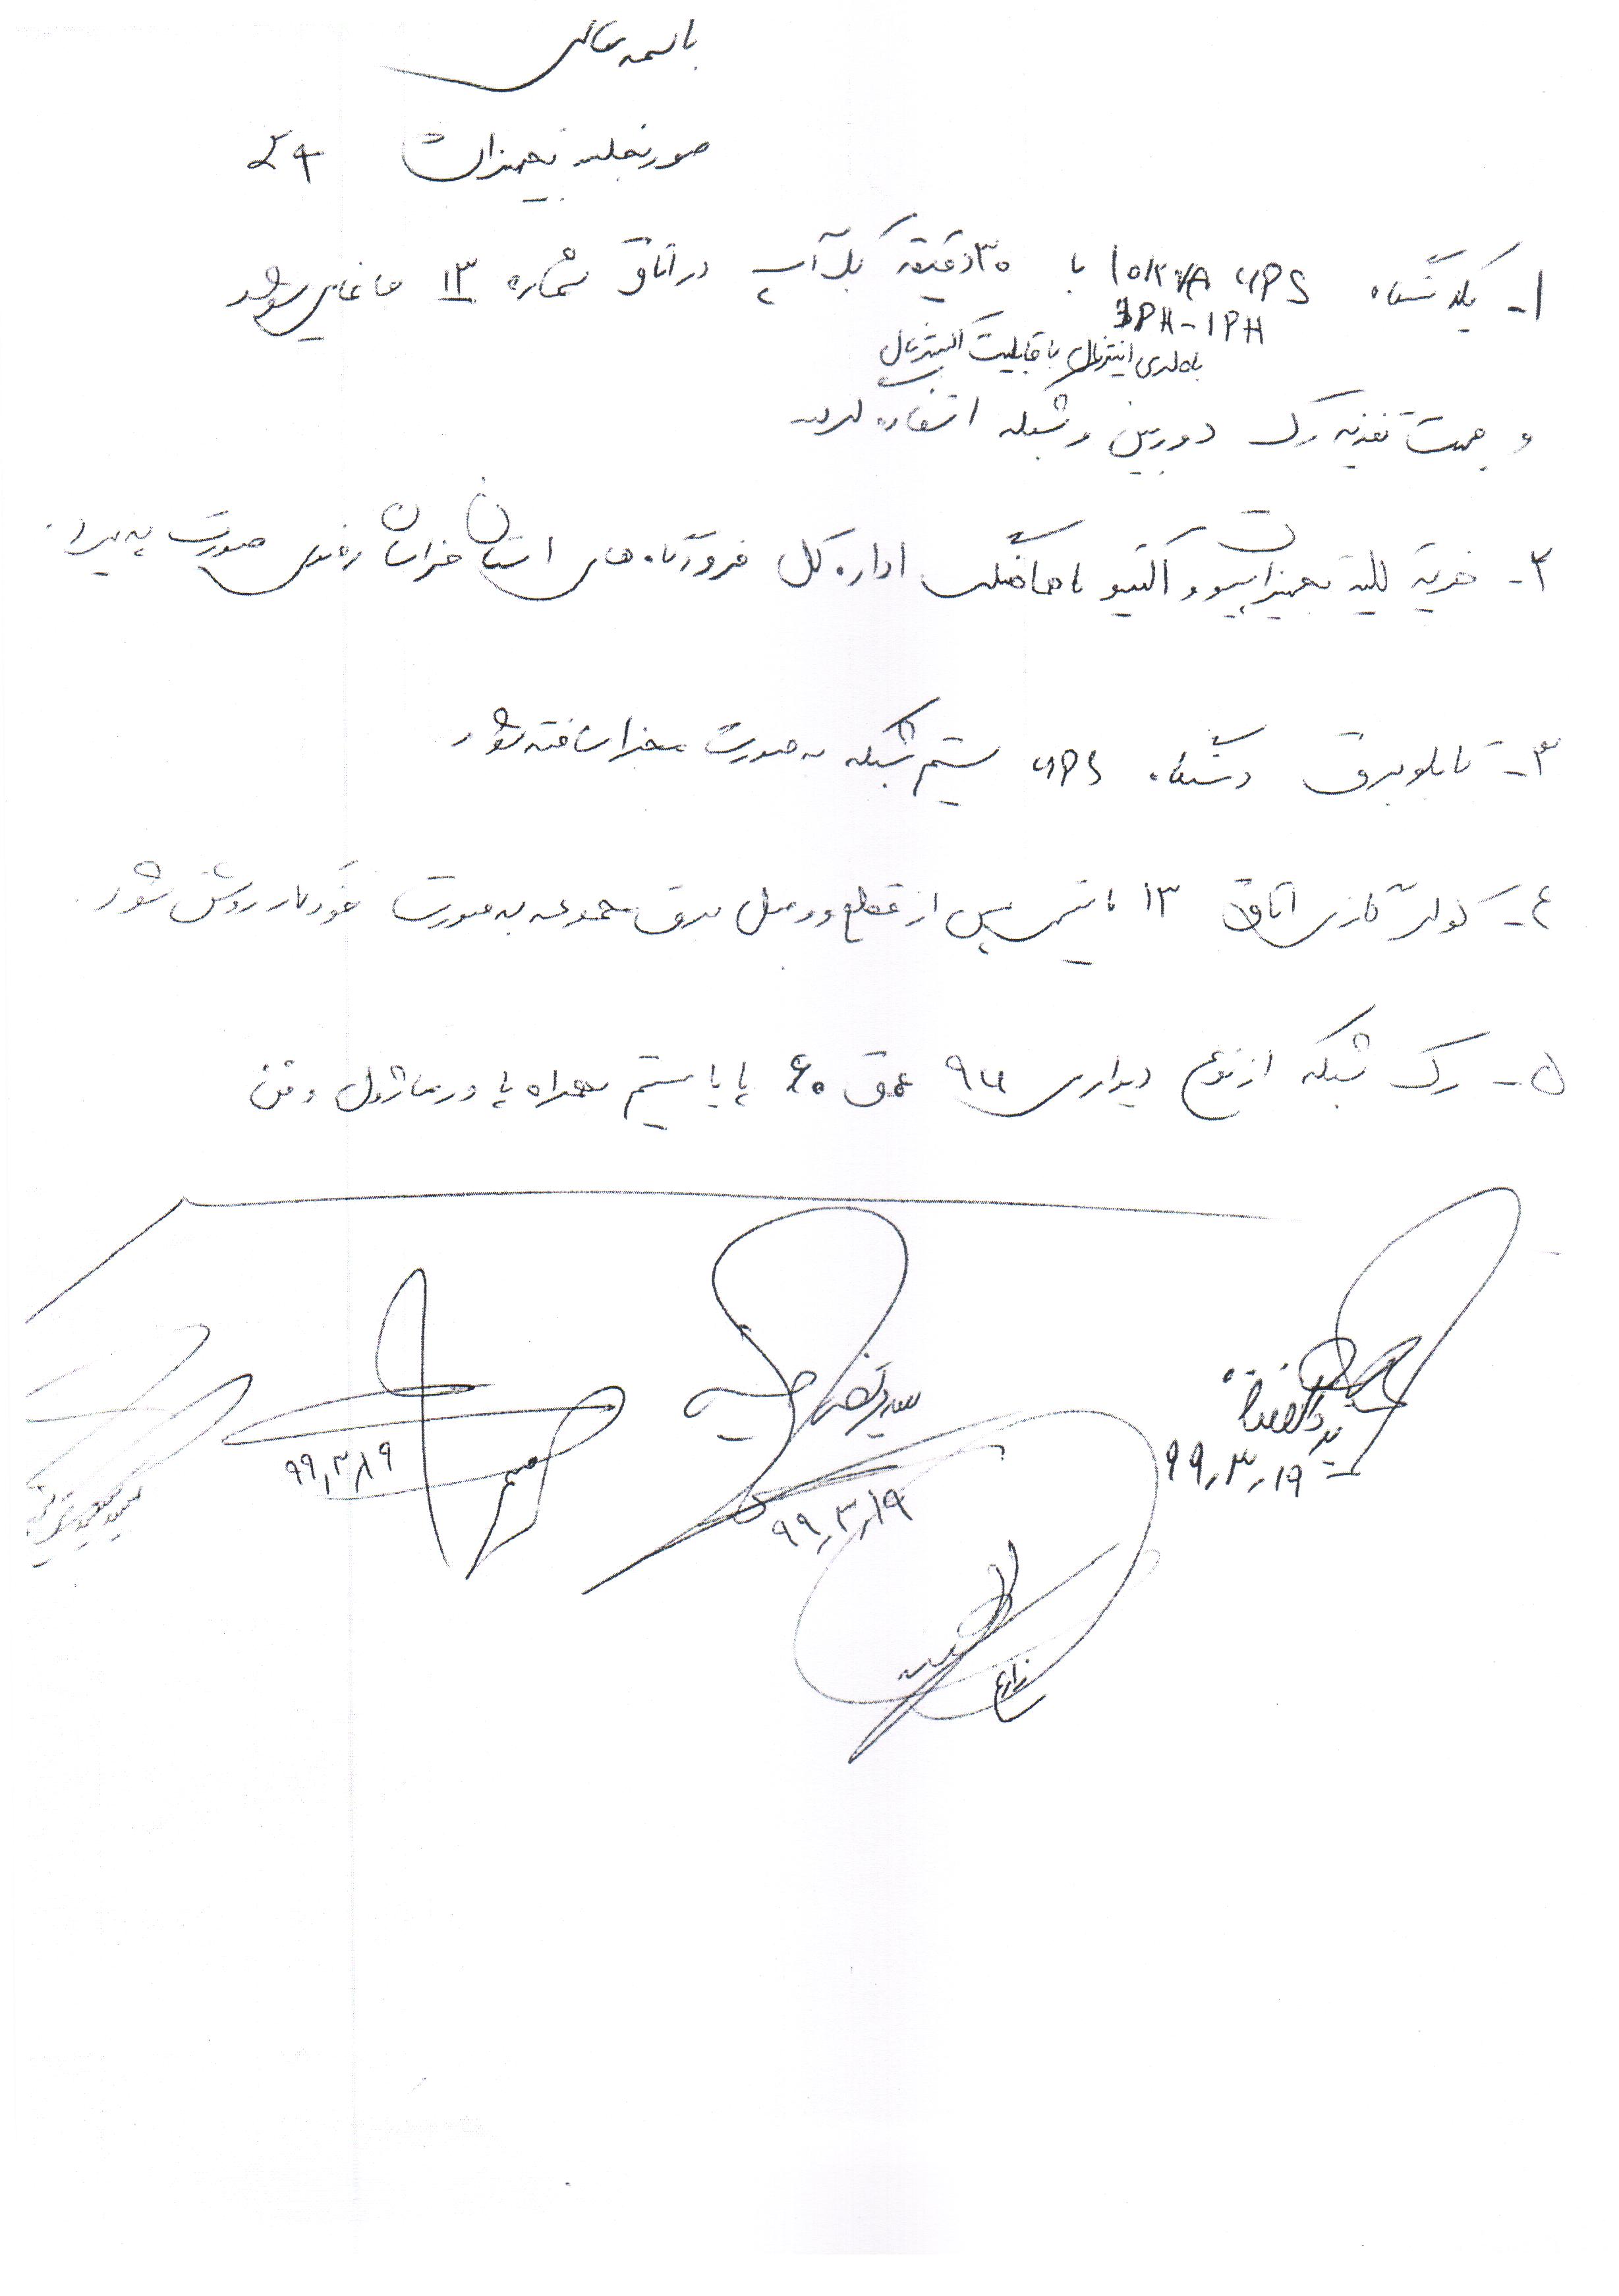 باسمه تعالی
صورتجلسه تجهیزات
۱- یکدستگاه UPS 10KVA با ۳۰ دقیقه بک آپ در اتاق شماره ۱۳ جانمایی شود
3PH-1PH
باطری اینترنال با قابلیت اکسترنال
و جهت تغذیه رک دوربین و شبکه استفاده گردد
۲- خرید کلیه تجهیزات پسیو و اکتیو با هماهنگی اداره کل فرودگاه های استان خراسان رضوی صورت پذیرد.
۳- تابلو برق دستگاه UPS سیستم شبکه به صورت مجزا ساخته شود
٤- کولر گازی اتاق ۱۳ پس از قطع و وصل برق مجموعه به صورت خودکار روشن شود.
۵- رک شبکه از نوع دیواری 9u عمق ۶۰ همراه پاورماژول و فن
۹۹,۳,۱۹
سید مرتضی
۹۹,۳,۱۹
۹۹,۳,۱۹
زارع